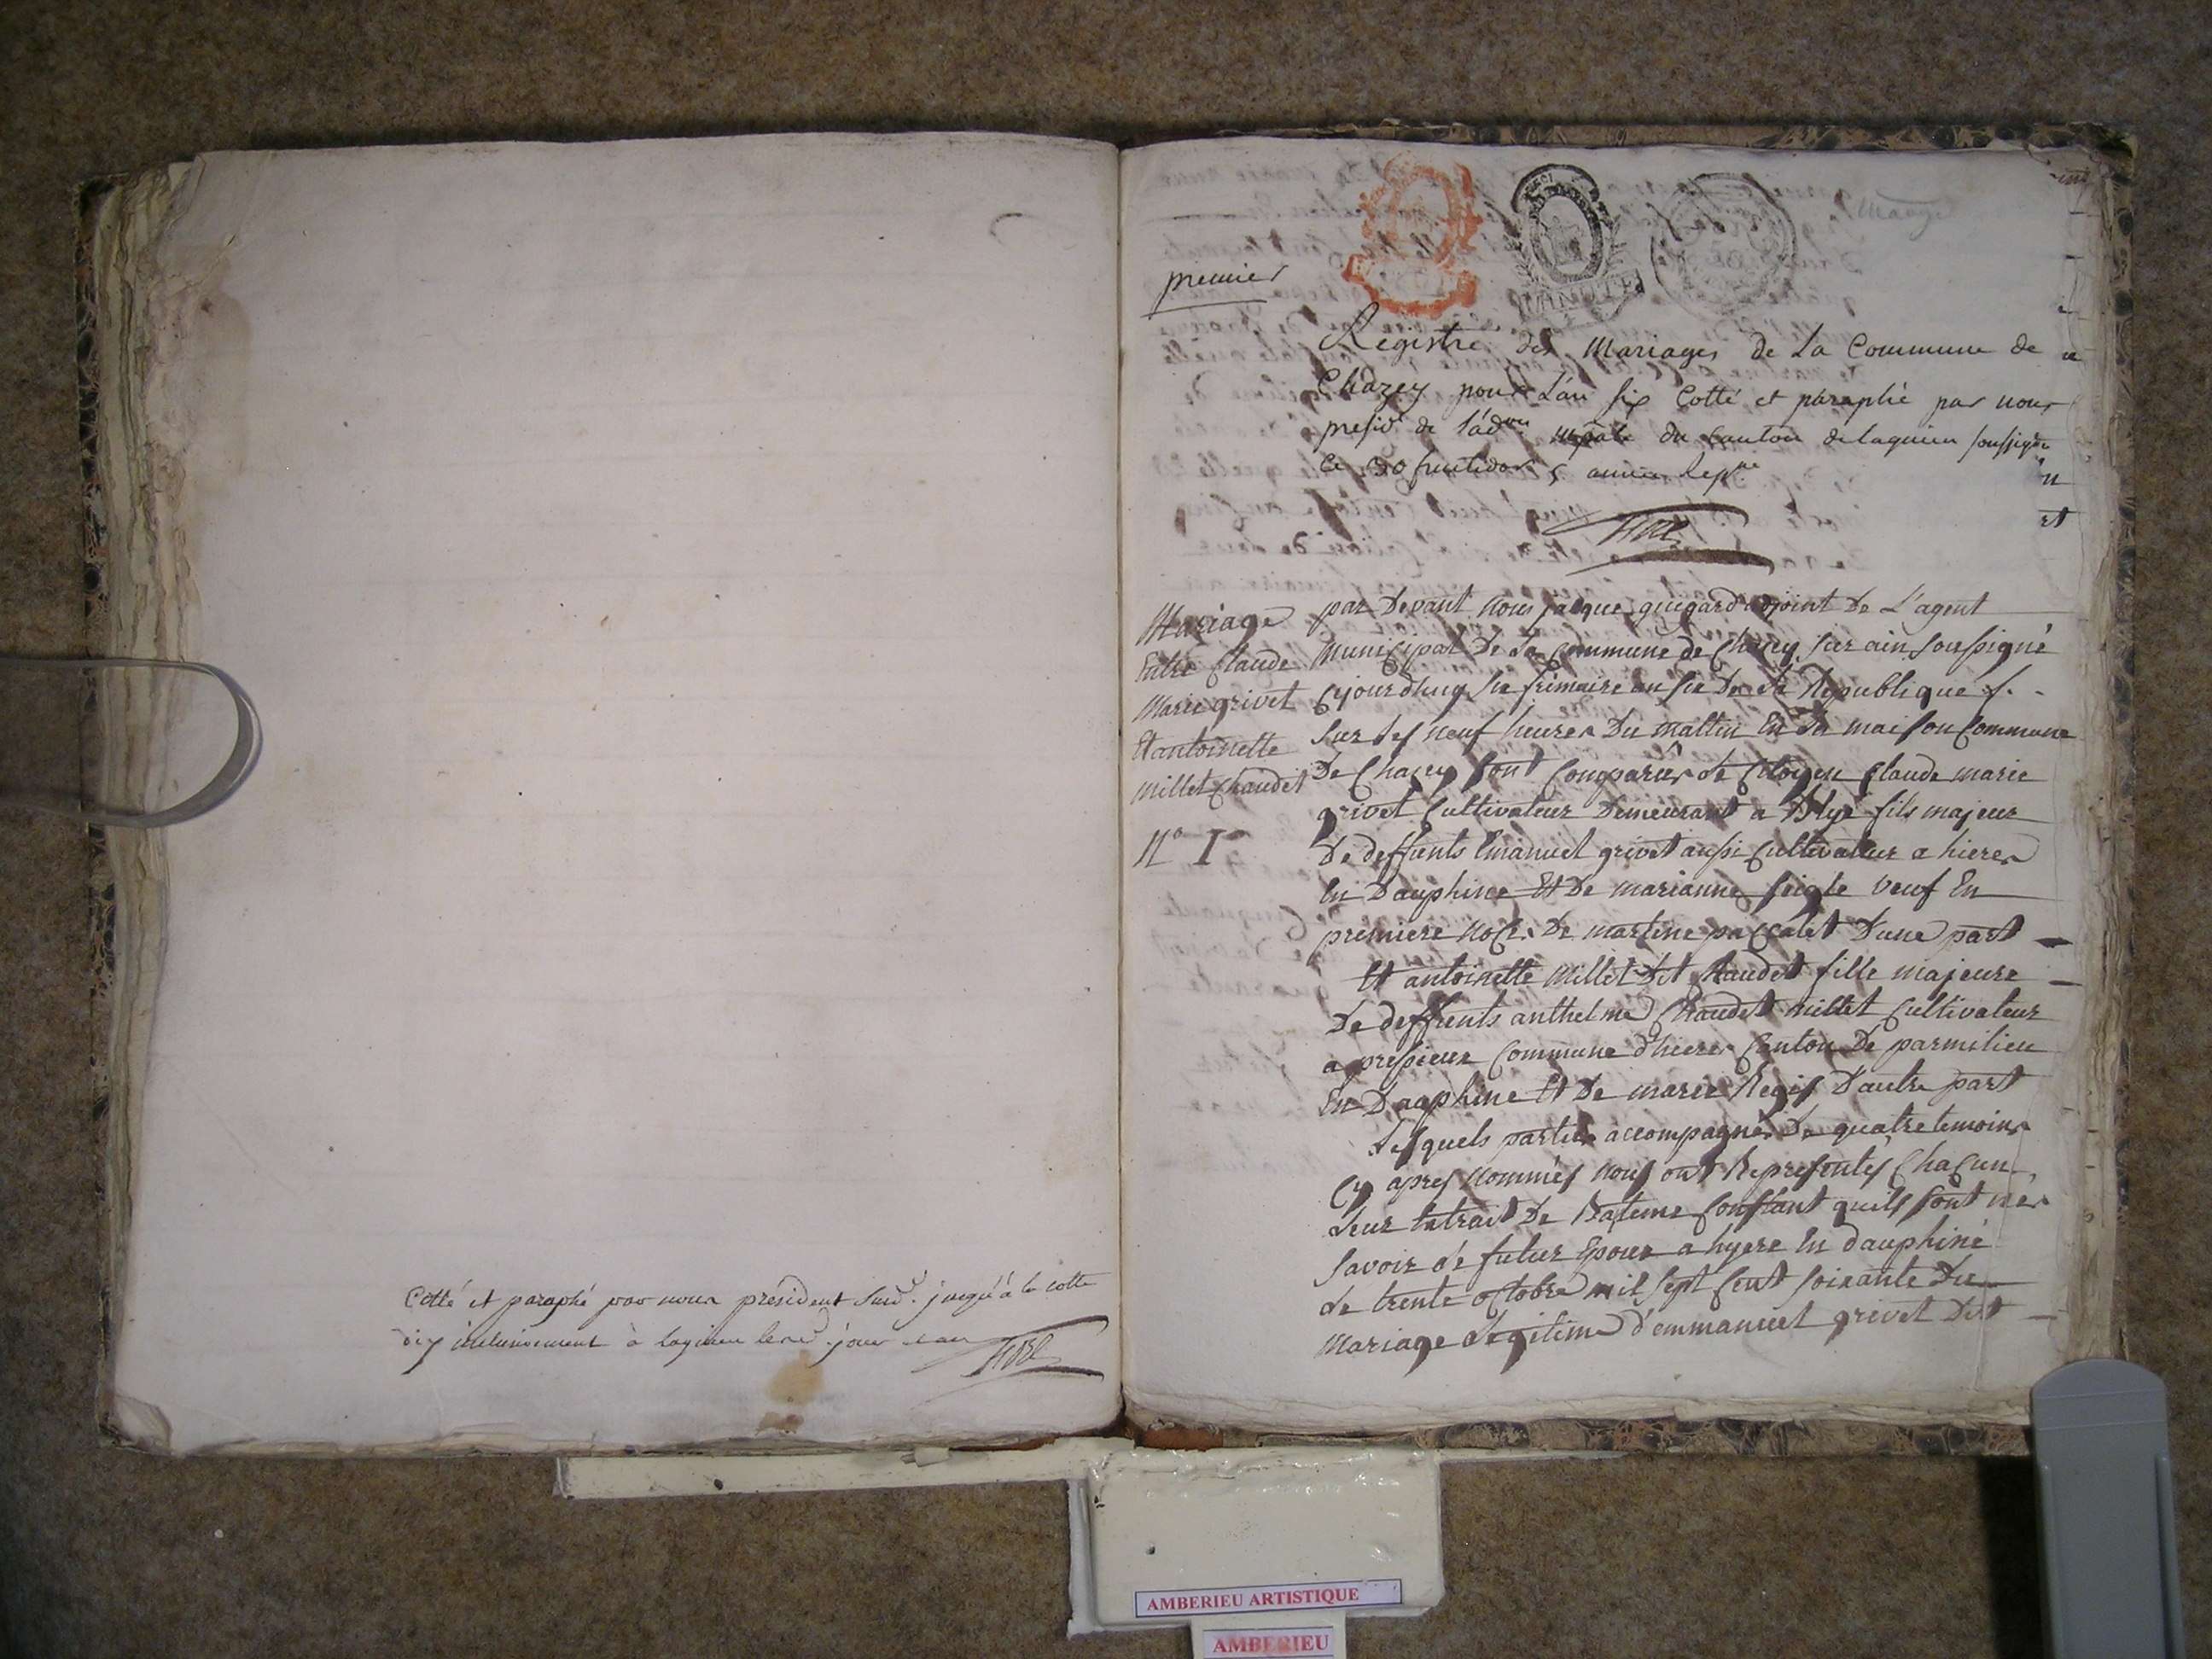 Cotté et paraphé par nous président susd. jusqu'à la cotte
dix inclusivement à Lagnieu lesd. jour et an
premier
MINUTE
Registre des Mariages de La Commune de
Chazey pour L'an six Cotté et paraphé par nous
presid. de l'ad.on mpale du Canton de lagnieu soussigné
le 30 fructidor 5 année Rep.ne
Mariage
Entre Claude
Marie grivet
Et antoinette
Millet Chaudet
N° I
par Devant nous jacque guigard adjoint De L'agent
Municipal De La Commune de Chazey sur ain soussigné
Cejourdhuy six frimaire an six De La Republique f.
Sur les neuf heures Du mattin En La maison Commune
De Chazey sont Comparus le Citoyen Claude marie
grivet Cultivateur Demeurant a Blye fils majeur
De deffunts Emanuel grivet aussi Cultivateur a hieres
En Dauphine Et De marianne seigle veuf En
premiere noce De martine paccalet D'une part
Et antoinette Millet Dit Chaudet fille majeure
De deffunts anthelme Chaudet millet Cultivateur
a pressieux Commune d'hieres Canton De parmilieu
En Dauphine Et De marie Regis D'autre part
Lesquels parties accompagnés De quatre temoins
Cy apres nommés nous ont Representés Chacun
Leur Extrait De Bateme Constant quils sont nés
Savoir le futur Epoux a hyere En dauphiné
le trente octobre mil sept cent soixante Du
Mariage Legitime d'emmanuel grivet Dit
AMBERIEU ARTISTIQUE
AMBERIEU